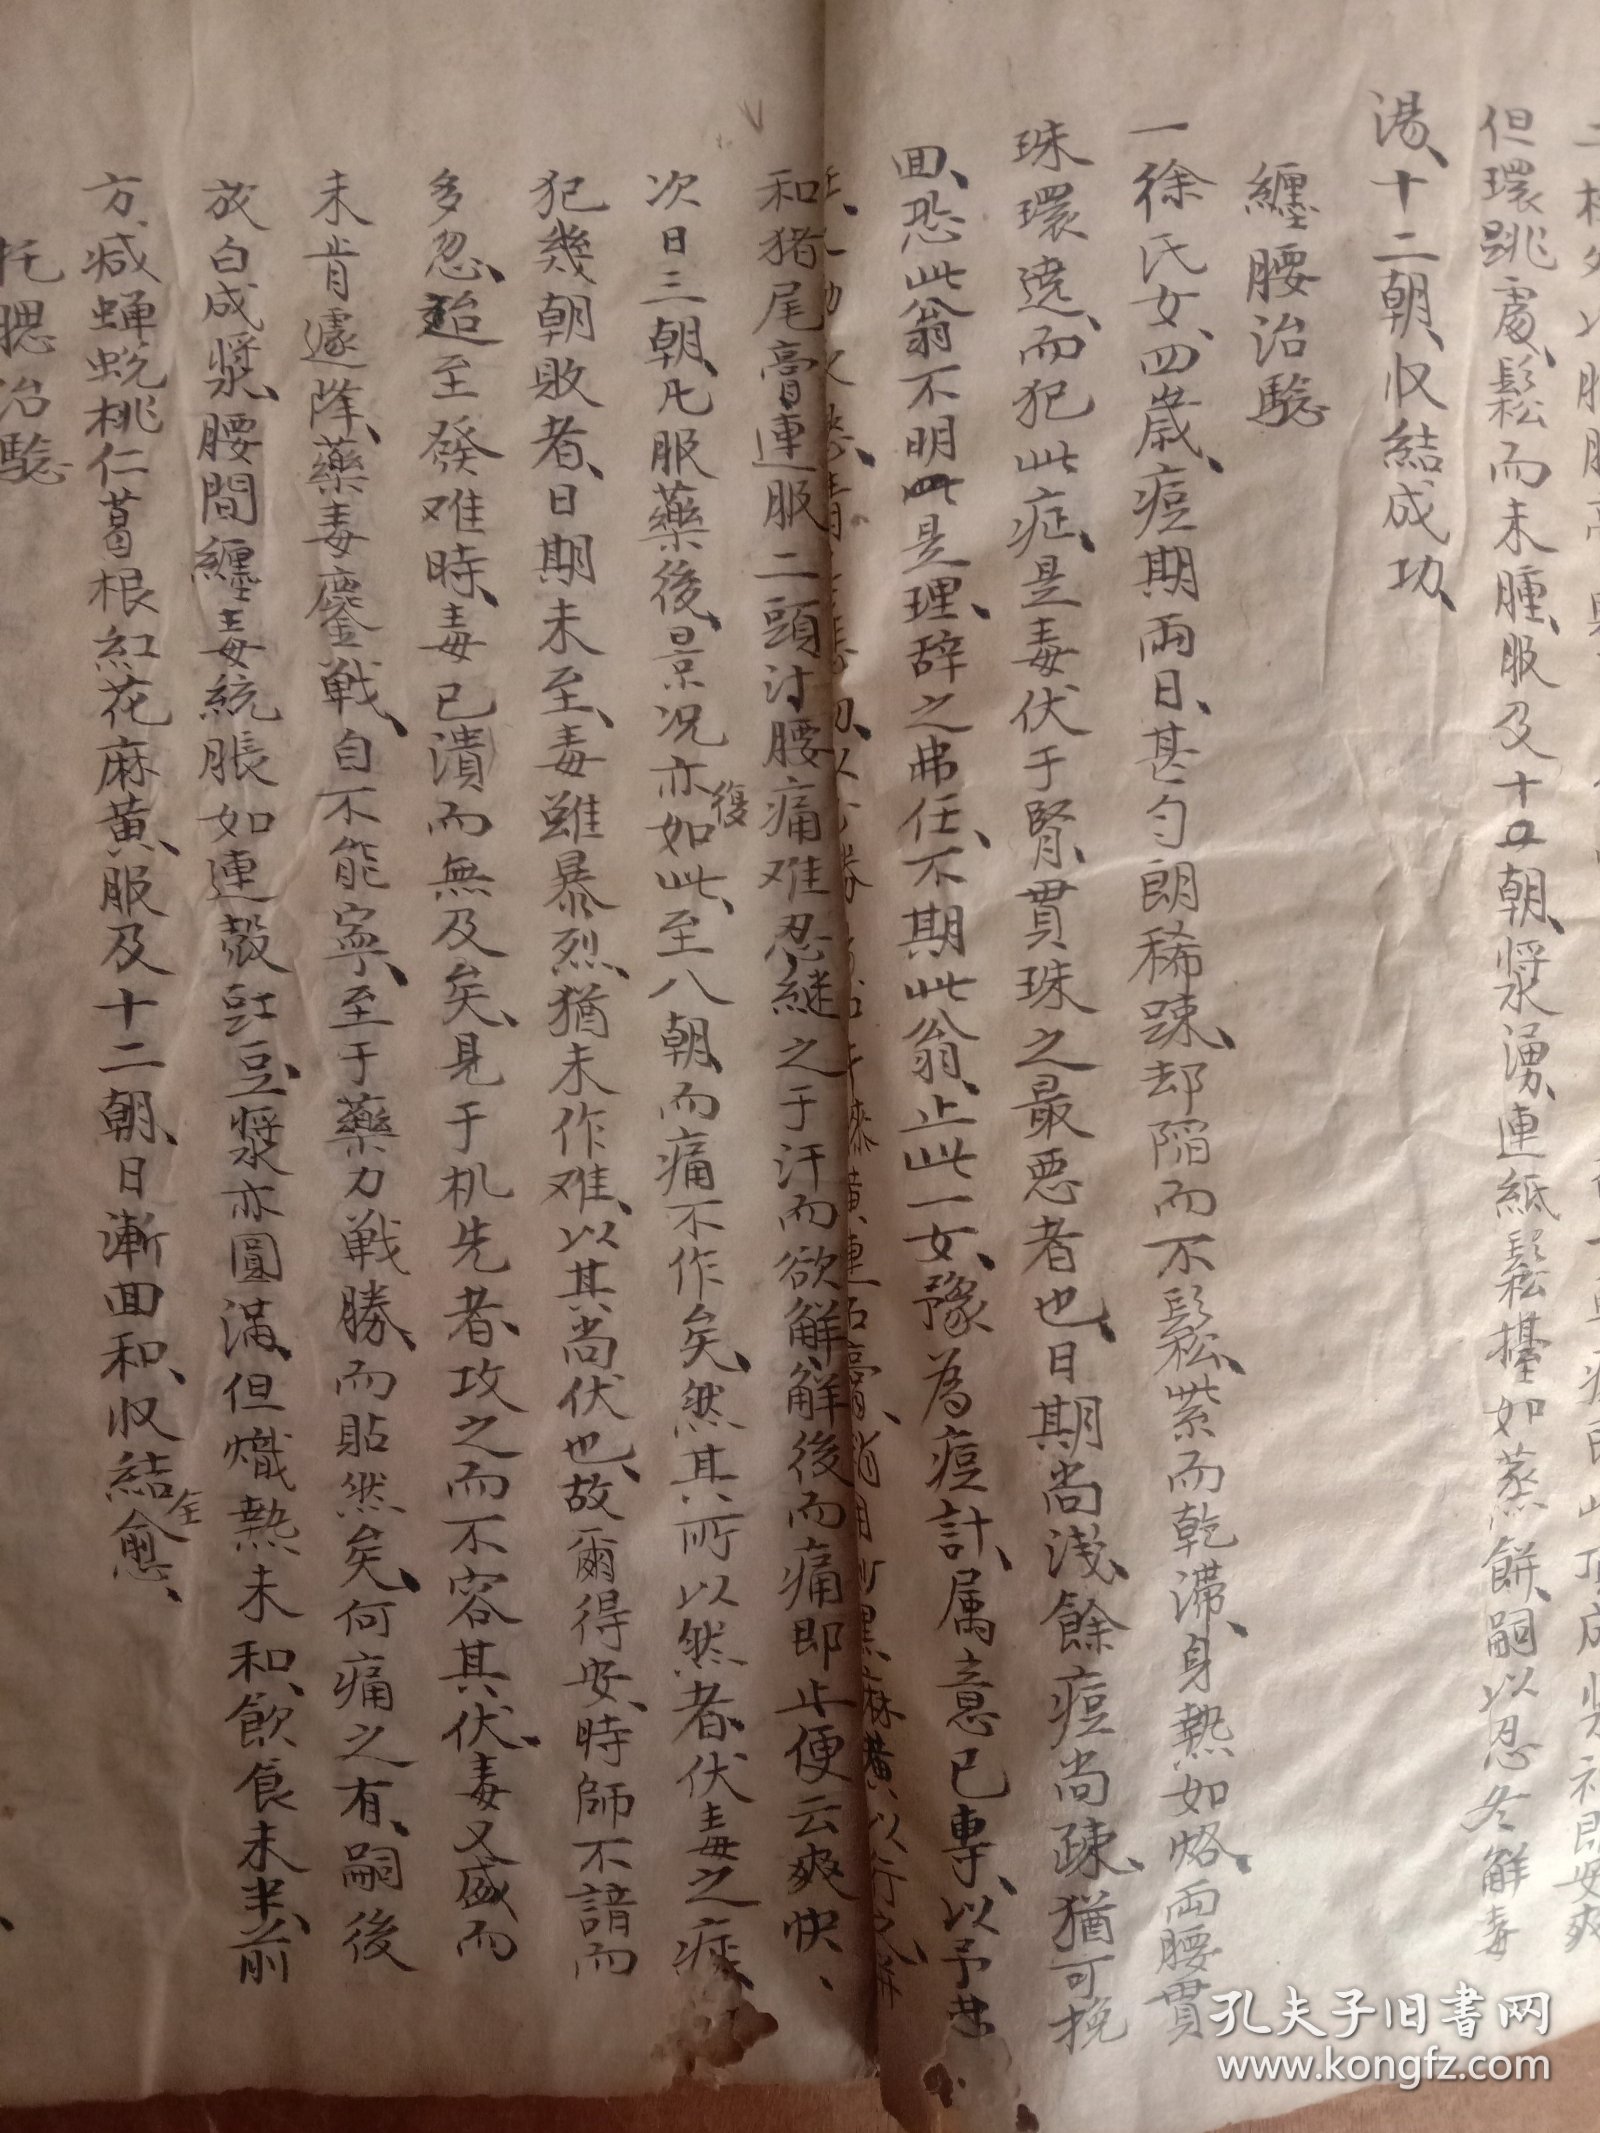 但環跳處、鬆而未腫、服及十四朝、漿湧、連紙鬆擡如蒸餅、嗣以忍冬解毒
湯、十二朝、收結成功、
纏腰治驗
一徐氏女、四歲、痘期兩日、甚勻朗稀疎、却陷而不鬆、紫而乾滯、身熱如烙、兩腰貫
珠環遶、而犯此症、是毒伏于腎、貫珠之最惡者也、日期尚淺、餘痘尚疎、猶可挽
回、恐此翁不明此是理、辭之弗任、不期此翁、止此一女、豫為痘計、属意已專、以予
和猪尾膏連服二頭汁腰痛难忍継之于汗而欲解解後而痛即止便云爽快、
次日三朝、凡服藥後、景況亦復如此、至八朝、而痛不作矣、然其所以然者、伏毒之症、
犯幾朝敗者、日期未至、毒雖暴烈、猶未作难、以其尚伏也、故爾得安、時師不諳而
多忽、迨至發难時、毒已潰而無及矣、見于机先者、攻之而不容其伏、毒又盛而
未肯遽降、藥毒鏖戰、自不能寧、至于藥力戰勝、而貼然矣、何痛之有、嗣後
放白成漿、腰間纏毒統脹如連殼豇豆、漿亦圓滿、但熾熱未和、飲食未半、前
方、減蟬蛻桃仁葛根紅花麻黄、服及十二朝、日漸回和、收結全愈、
托腮治驗
孔夫子旧書网
www.kongfz.com